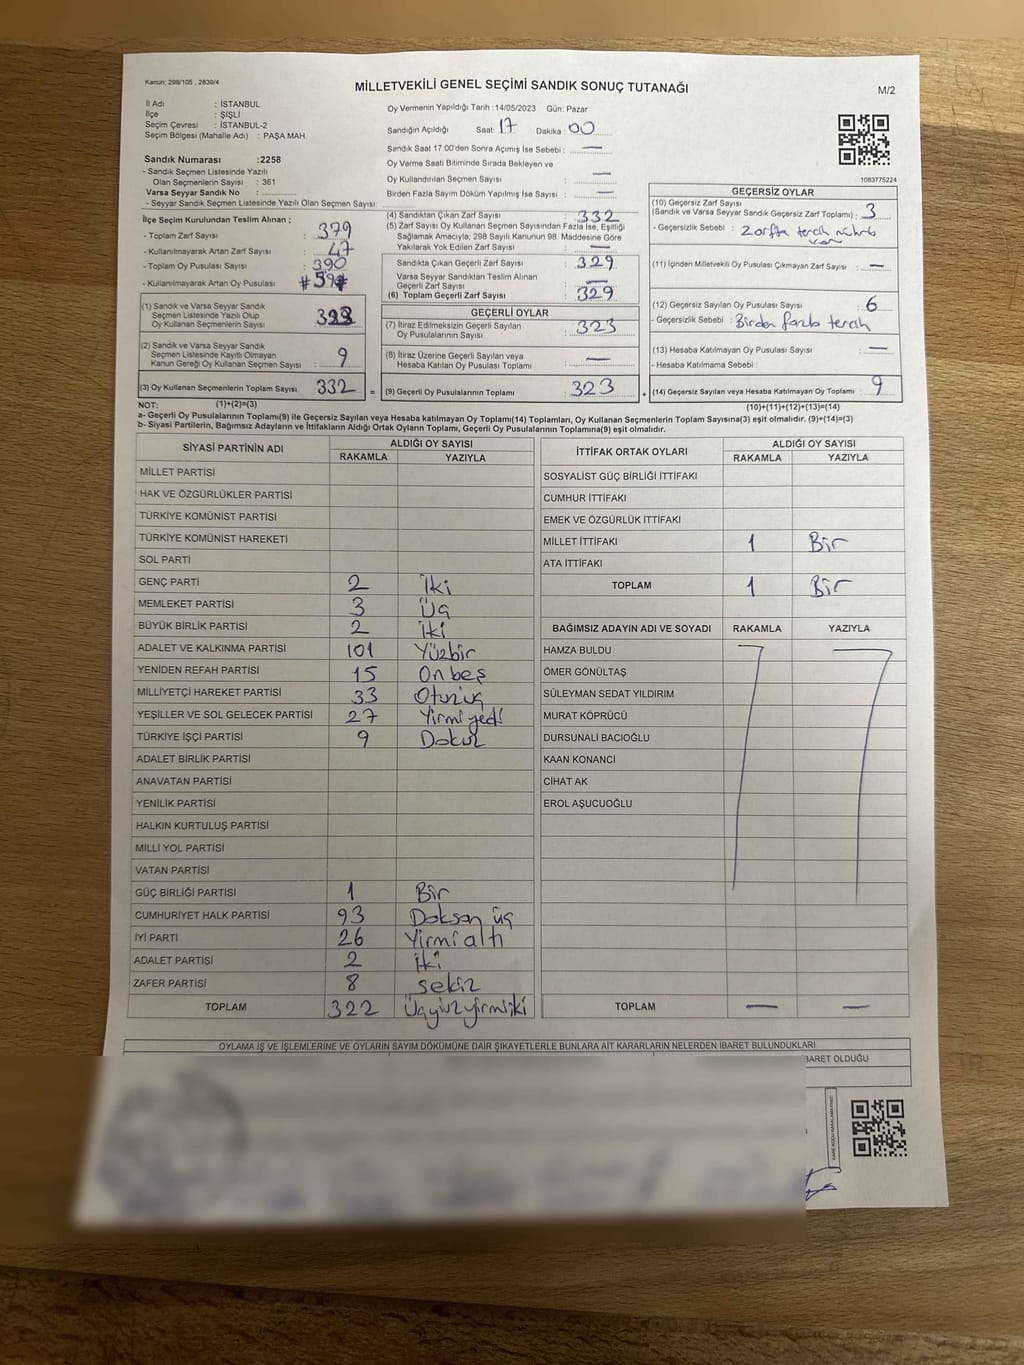 Kanun: 298/105 , 2839/4
MİLLETVEKİLİ GENEL SEÇİMİ SANDIK SONUÇ TUTANAĞI
M/2
İl Adı : İSTANBUL
İlçe : ŞİŞLİ
Seçim Çevresi : İSTANBUL-2
Seçim Bölgesi (Mahalle Adı) : PAŞA MAH.
Sandık Numarası :2258
- Sandık Seçmen Listesinde Yazılı
Olan Seçmenlerin Sayısı : 361
Varsa Seyyar Sandık No :
- Seyyar Sandık Seçmen Listesinde Yazılı Olan Seçmen Sayısı:
Oy Vermenin Yapıldığı Tarih :14/05/2023 Gün: Pazar
Sandığın Açıldığı Saat: 17 Dakika : 00
Sandık Saat 17:00'den Sonra Açımış İse Sebebi : —
Oy Verme Saati Bitiminde Sırada Bekleyen ve
Oy Kullandırılan Seçmen Sayısı : —
Birden Fazla Sayım Döküm Yapılmış İse Sayısı : —
1083775224
İlçe Seçim Kurulundan Teslim Alınan ;
- Toplam Zarf Sayısı : 379
- Kullanılmayarak Artan Zarf Sayısı : 47
- Toplam Oy Pusulası Sayısı : 390
- Kullanılmayarak Artan Oy Pusulası :
(1) Sandık ve Varsa Seyyar Sandık
Seçmen Listesinde Yazılı Olup
Oy Kullanan Seçmenlerin Sayısı :
(2) Sandık ve Varsa Seyyar Sandık
Seçmen Listesinde Kayıtlı Olmayan
Kanun Gereği Oy Kullanan Seçmen Sayısı : 9
(3) Oy Kullanan Seçmenlerin Toplam Sayısı : 332
(4) Sandıktan Çıkan Zarf Sayısı : 332
(5) Zarf Sayısı Oy Kullanan Seçmen Sayısından Fazla İse, Eşitliği
Sağlamak Amacıyla, 298 Sayılı Kanunun 98. Maddesine Göre
Yakılarak Yok Edilen Zarf Sayısı : —
Sandıkta Çıkan Geçerli Zarf Sayısı : 329
Varsa Seyyar Sandıktan Teslim Alınan
Geçerli Zarf Sayısı : —
(6) Toplam Geçerli Zarf Sayısı : 329
GEÇERLİ OYLAR
(7) İtiraz Edilmeksizin Geçerli Sayılan
Oy Pusulalarının Sayısı : 323
(8) İtiraz Üzerine Geçerli Sayılan veya
Hesaba Katılan Oy Pusulası Toplamı : —
= (9) Geçerli Oy Pusulalarının Toplamı : 323
GEÇERSİZ OYLAR
(10) Geçersiz Zarf Sayısı
(Sandık ve Varsa Seyyar Sandık Geçersiz Zarf Toplamı) : 3
- Geçersizlik Sebebi : Zarfta tercih mührü
var
(11) İçinden Milletvekili Oy Pusulası Çıkmayan Zarf Sayısı : —
(12) Geçersiz Sayılan Oy Pusulası Sayısı : 6
- Geçersizlik Sebebi : Birden fazla tercih
(13) Hesaba Katılmayan Oy Pusulası Sayısı : —
- Hesaba Katılmama Sebebi :
+ (14) Geçersiz Sayılan veya Hesaba Katılmayan Oy Toplamı : 9
NOT: (1)+(2)=(3) (10)+(11)+(12)+(13)=(14)
a- Geçerli Oy Pusulalarının Toplamı(9) ile Geçersiz Sayılan veya Hesaba katılmayan Oy Toplamı(14) Toplamları, Oy Kullanan Seçmenlerin Toplam Sayısına(3) eşit olmalıdır. (9)+(14)=(3)
b- Siyasi Partilerin, Bağımsız Adayların ve İttifakların Aldığı Ortak Oyların Toplamı, Geçerli Oy Pusulalarının Toplamına(9) eşit olmalıdır.
SİYASİ PARTİNİN ADI ALDIĞI OY SAYISI
RAKAMLA YAZIYLA
MİLLET PARTİSİ
HAK VE ÖZGÜRLÜKLER PARTİSİ
TÜRKİYE KOMÜNİST PARTİSİ
TÜRKİYE KOMÜNİST HAREKETİ
SOL PARTİ
GENÇ PARTİ 2 İki
MEMLEKET PARTİSİ 3 Üç
BÜYÜK BİRLİK PARTİSİ 2 İki
ADALET VE KALKINMA PARTİSİ 101 Yüzbir
YENİDEN REFAH PARTİSİ 15 Onbeş
MİLLİYETÇİ HAREKET PARTİSİ 33 Otuzüç
YEŞİLLER VE SOL GELECEK PARTİSİ 27 Yirmi yedi
TÜRKİYE İŞÇİ PARTİSİ 9 Dokuz
ADALET BİRLİK PARTİSİ
ANAVATAN PARTİSİ
YENİLİK PARTİSİ
HALKIN KURTULUŞ PARTİSİ
MİLLİ YOL PARTİSİ
VATAN PARTİSİ
GÜÇ BİRLİĞİ PARTİSİ 1 Bir
CUMHURİYET HALK PARTİSİ 93 Doksan üç
İYİ PARTİ 26 Yirmi altı
ADALET PARTİSİ 2 İki
ZAFER PARTİSİ 8 sekiz
TOPLAM 322 Üçyüzyirmiiki
İTTİFAK ORTAK OYLARI ALDIĞI OY SAYISI
RAKAMLA YAZIYLA
SOSYALİST GÜÇ BİRLİĞİ İTTİFAKI
CUMHUR İTTİFAKI
EMEK VE ÖZGÜRLÜK İTTİFAKI
MİLLET İTTİFAKI 1 Bir
ATA İTTİFAKI
TOPLAM 1 Bir
BAĞIMSIZ ADAYIN ADI VE SOYADI RAKAMLA YAZIYLA
HAMZA BULDU
ÖMER GÖNÜLTAŞ
SÜLEYMAN SEDAT YILDIRIM
MURAT KÖPRÜCÜ
DURSUNALİ BACIOĞLU
KAAN KONANCİ
CİHAT AK
EROL AŞUCUOĞLU
TOPLAM — —
OYLAMA İŞ VE İŞLEMLERİNE VE OYLARIN SAYIM DÖKÜMÜNE DAİR ŞİKAYETLERLE BUNLARA AİT KARARLARIN NELERDEN İBARET BULUNDUKLARI
BARET OLDUĞU